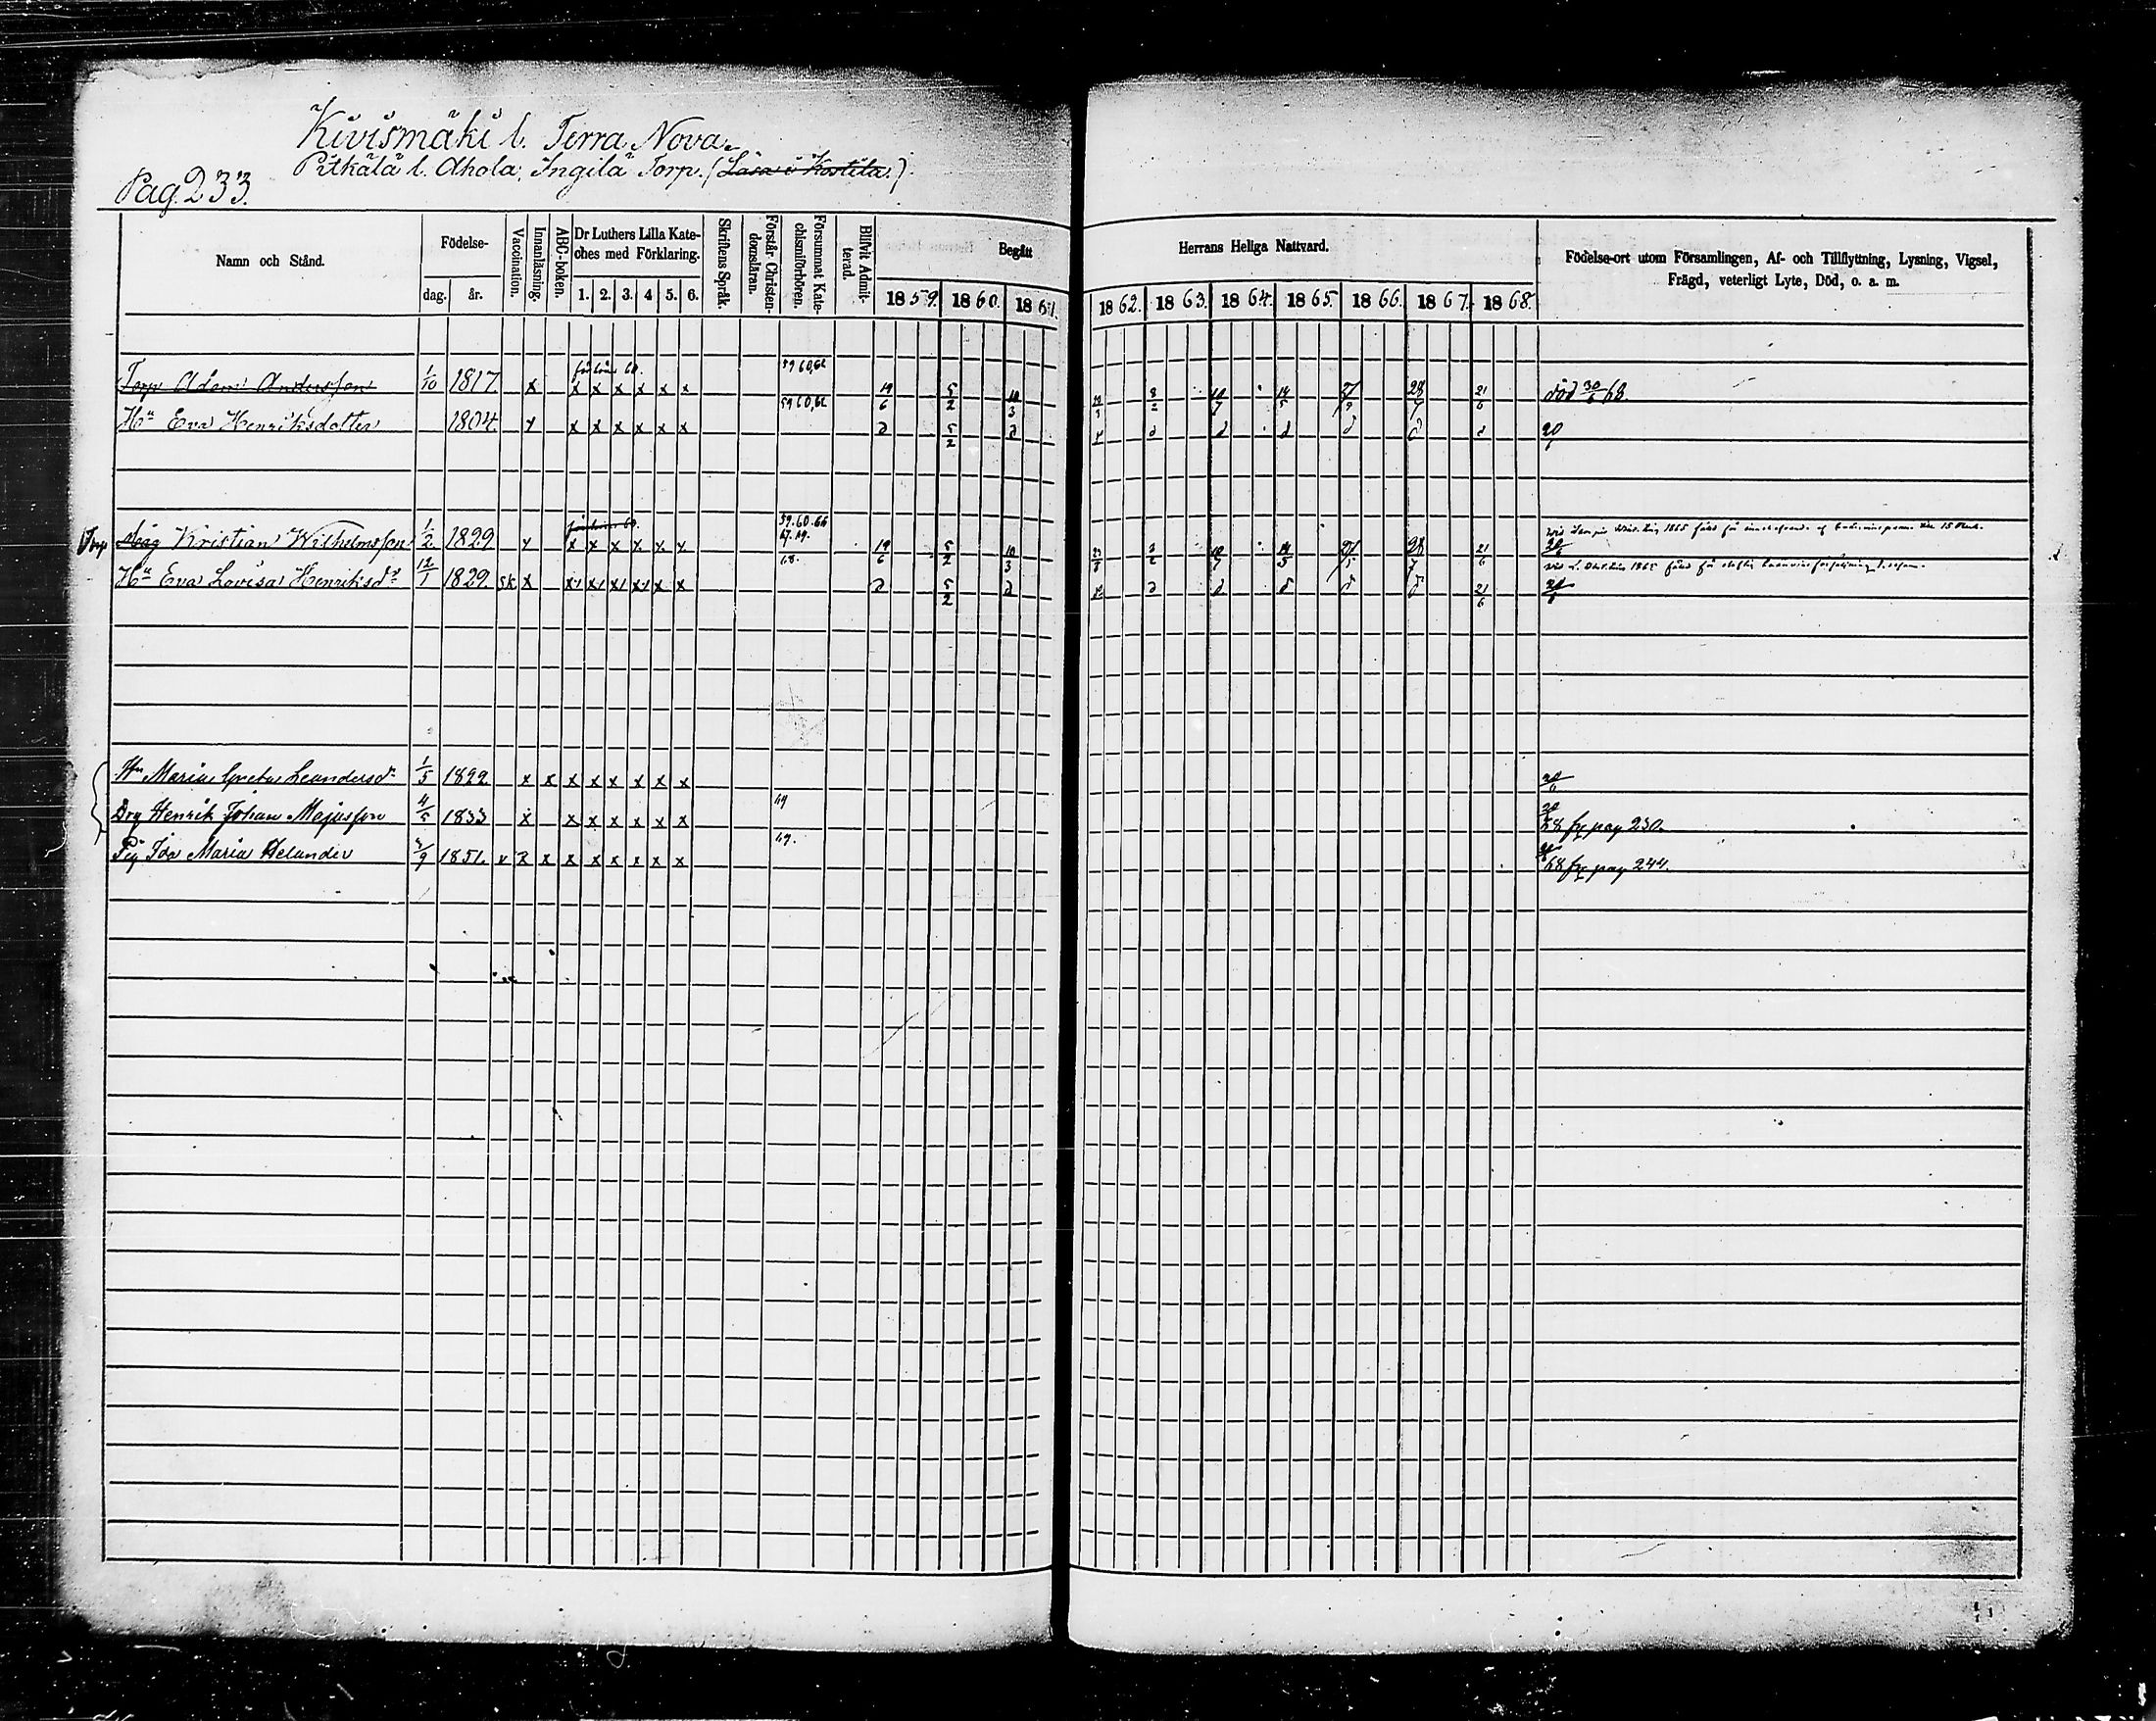 Kivismäki l. Terra Nova
Pitkälä l. Ahola, Ingilä Torp. (Läsa i Kostila.)
Pag. 233.
Namn och Stånd.
Födelse-
dag. år.
Vaccination.
Innanläsning.
ABC-boken.
Dr Luthers Lilla Kate-
ches med Förklaring.
1. 2. 3. 4 5. 6.
Skriftens Språk.
Förstår Christen-
domsläran.
Försummat Kate-
chismiförhören.
Blifvit Admit-
terad.
Begått
1859. 1860. 1861.
Herrans Heliga Nattvard.
1862. 1863. 1864. 1865. 1866. 1867. 1868.
Födelse-ort utom Församlingen, Af- och Tillflyttning, Lysning, Vigsel,
Frägd, veterligt Lyte, Död, o. a. m.
59 60,62
Torp Adam Andersson 1/10 1817 x x x x x x x 19/6 5/2 10/3 10/7 14/5 28/7 21/6 död 30/6 68.
59 60,62
Hu Eva Henriksdotter 1804 x x x x x x d 5/2 d d d d d d d 20/6
59. 60. 66
67. 69.
Torp Kristian Wilhelmsson 1/2 1829 x x x x x x 19/6 5/2 10/3 10/7 14/5 28/7 21/6 20/6
68.
Hu Eva Lovisa Henriksdr 12/1 1829. sk x x x x x x x d 5/2 d d d d d d 21/6 20/6
Hn Maria Greta Leandersdr 1/5 1822 x x x x x x x x 20/6
69
Drg Henrik Johan Majusson 4/5 1833 x x x x x x x 20/6 68 fr pag 230.
69.
Pig Ida Maria Helander 1851. v x x x x x x x x 68 fr pag 244.